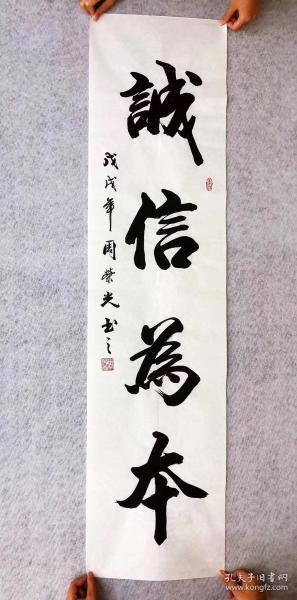 誠信為本
戊戌年周榮光書之
孔夫子旧书网
www.kongfz.com